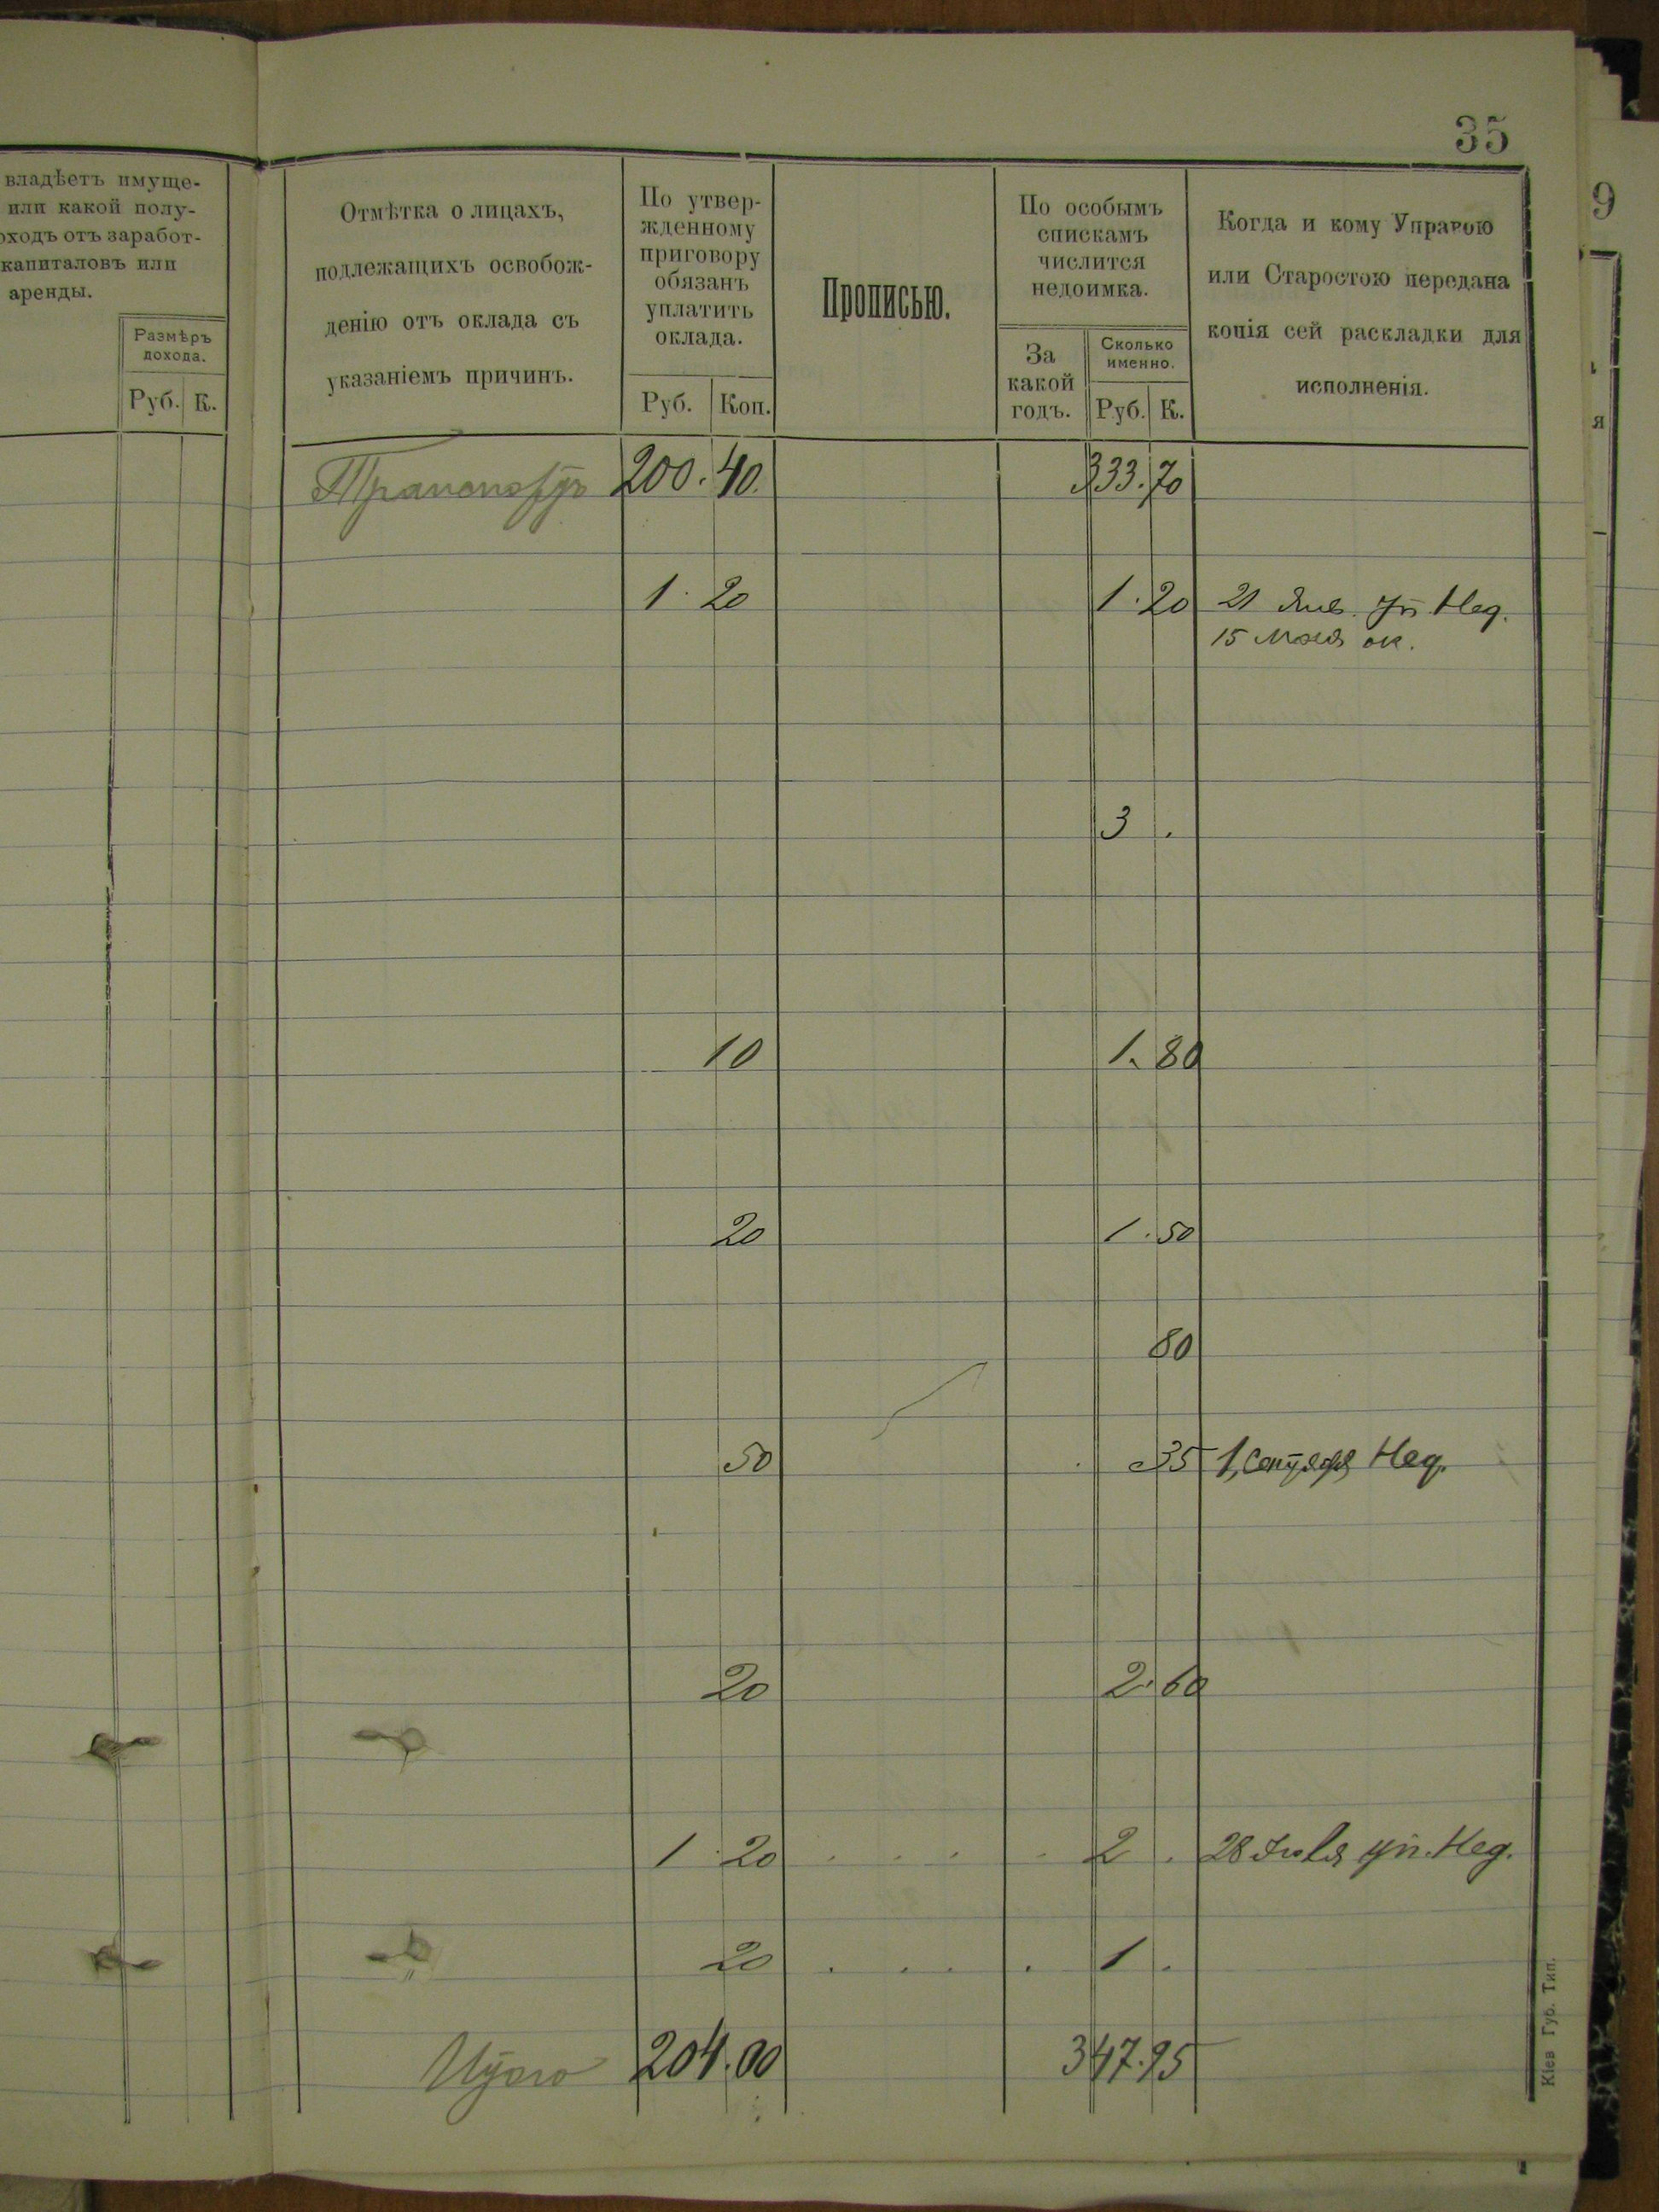 35
владѣетъ имуще-
или какой полу-
оходъ отъ заработ-
капиталовъ или
аренды.
Размѣръ
дохода.
Руб. К.
Отмѣтка о лицахъ,
подлежащихъ освобож-
денію отъ оклада съ
указаніемъ причинъ.
По утвер-
жденному
приговору
обязанъ
уплатить
оклада.
Руб. Коп.
Прописью.
По особымъ
спискамъ
числится
недоимка.
За
какой
годъ.
Сколько
именно.
Руб. К.
Когда и кому Управою
или Старостою передана
копія сей раскладки для
исполненія.
9
я
Транспортъ 200. 40. 333. 70
1. 20 1. 20 21 Янв. уп. Нед.
15 Мая ок.
3 .
10 1. 80
20 1. 50
80
50 35 1 Сентября Нед.
20 2. 60
1. 20 . . . . 2 . 28 Іюля уп. Нед.
20 . . . . 1 .
Итого 204. 00 347. 95
Кіев Губ. Тип.